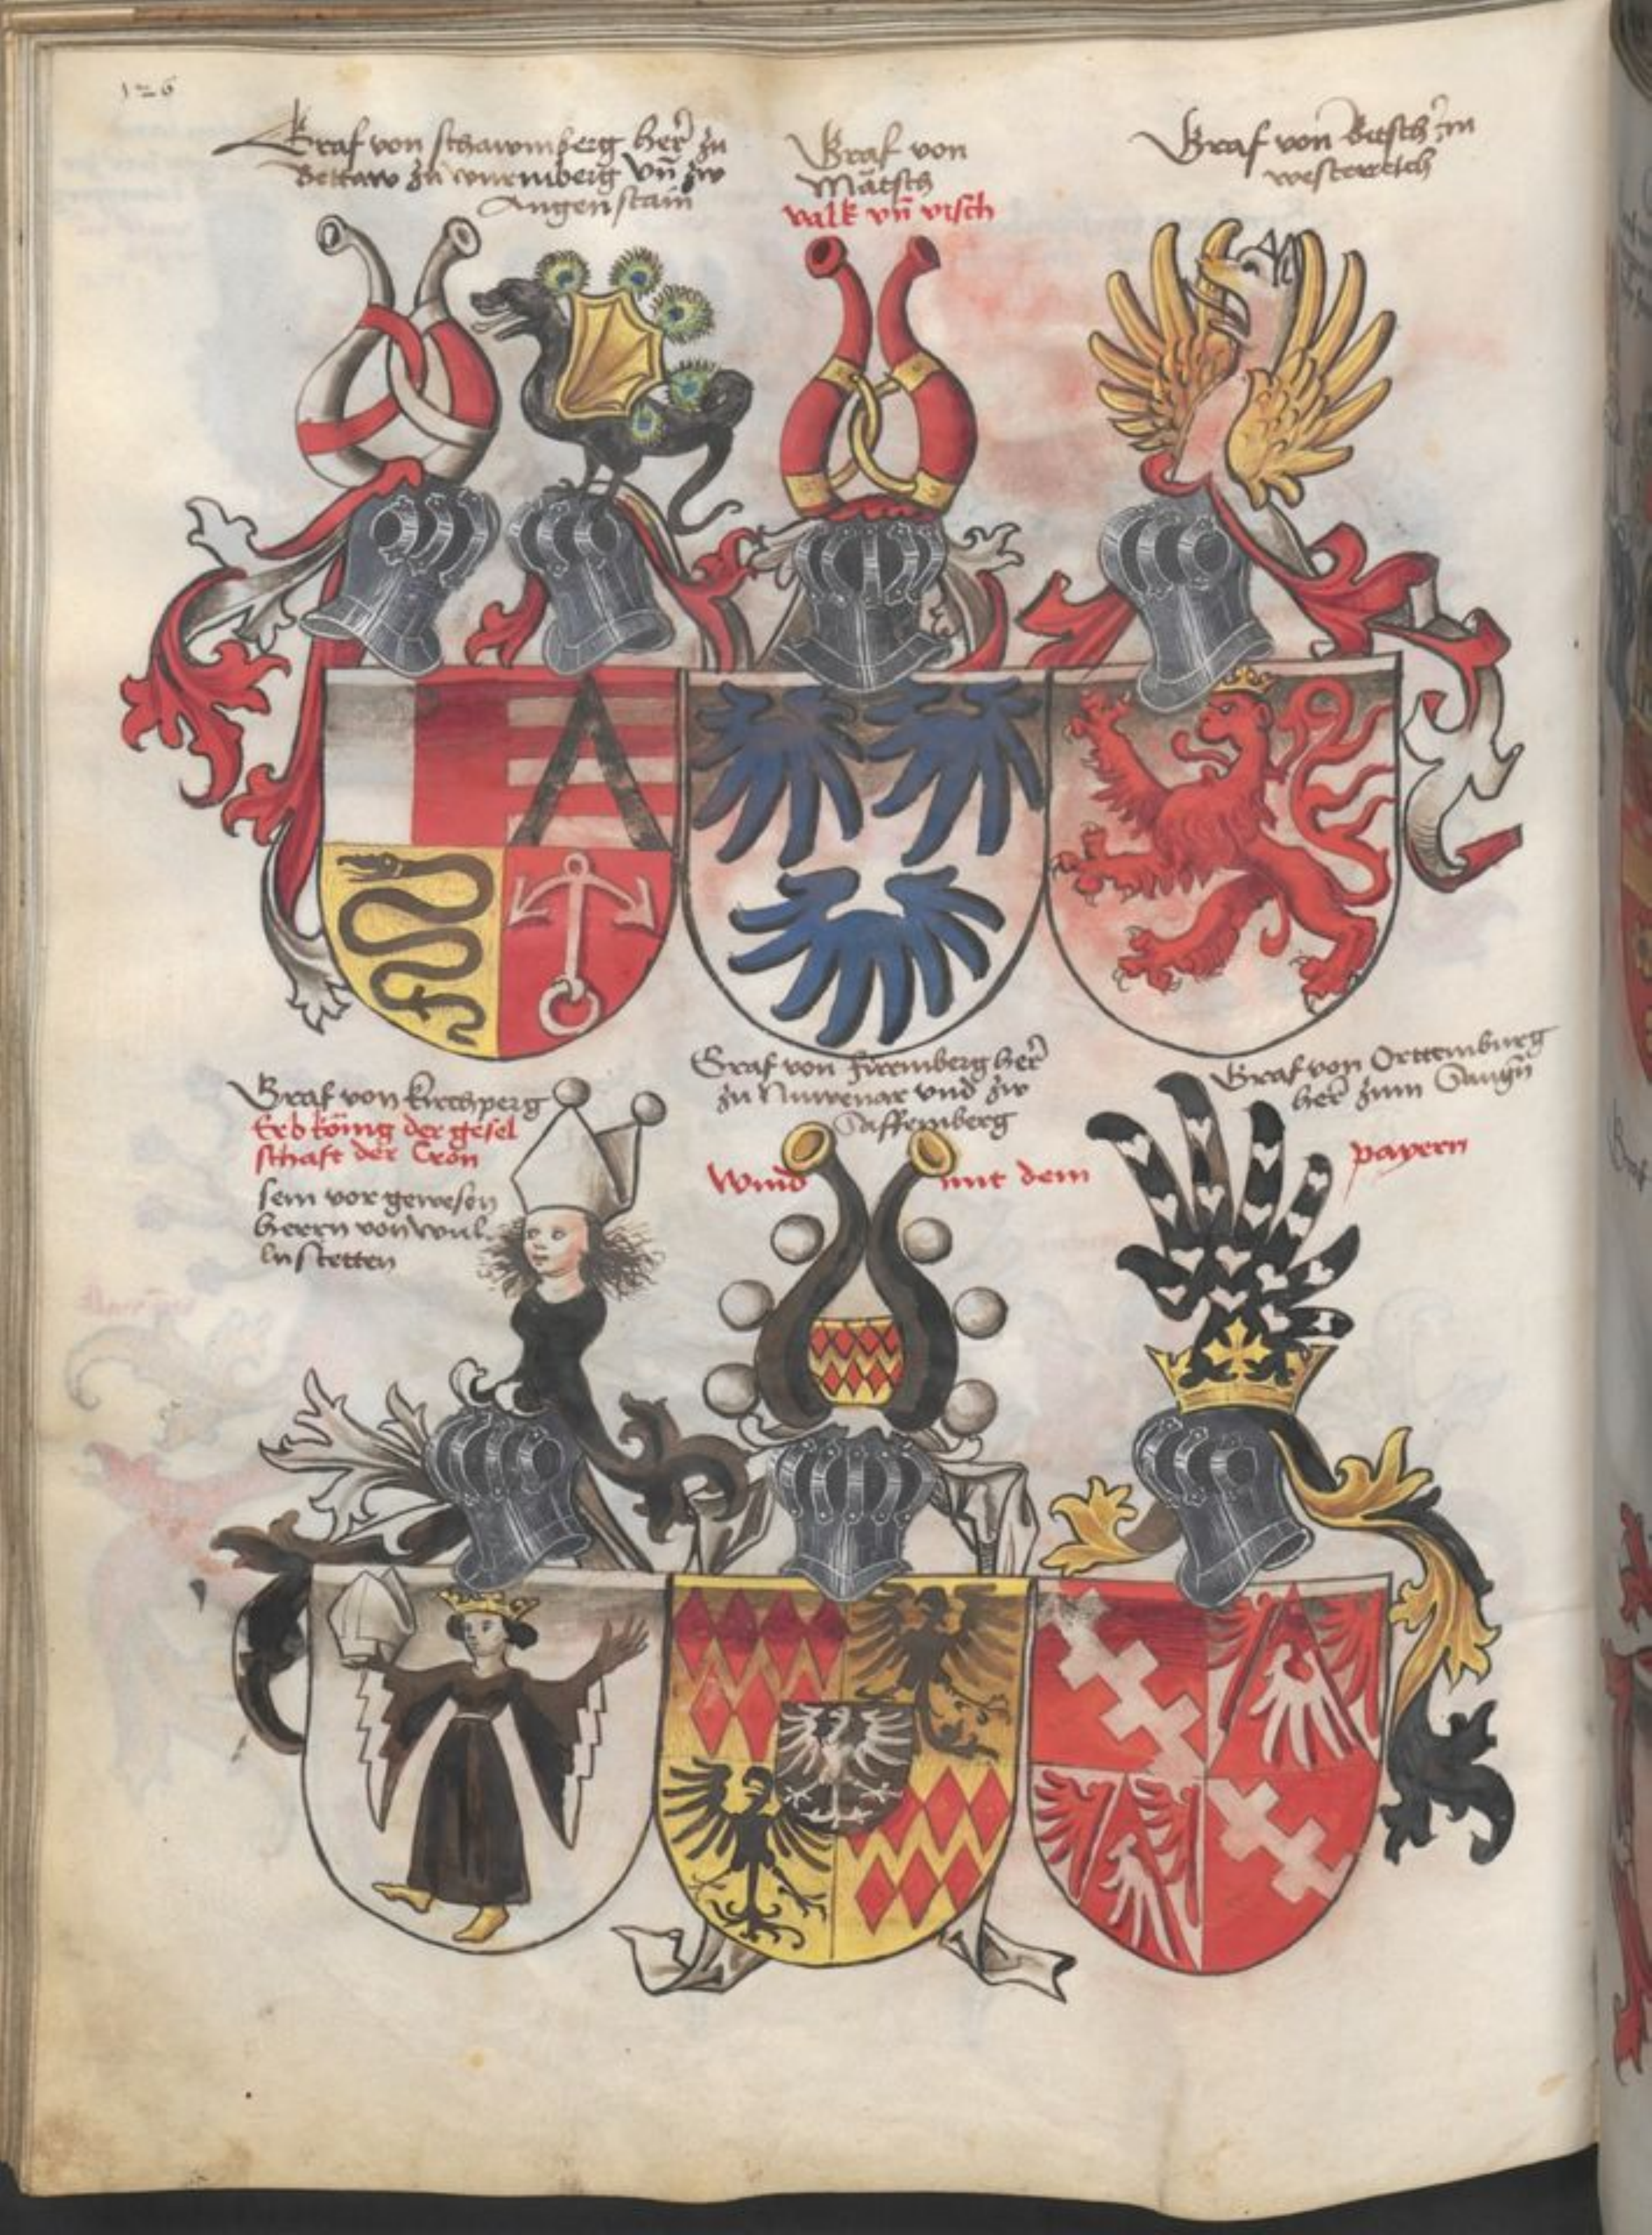 126
Graf von schawmberg her̄ zu
Bettaw zu wurmberg vn̄ zw
Angenstain
Graf von
Mätsch
valk vn̄ visch
Graf von Bitsch in
westerreich
Graf von kirchperg
Erbköing der gesel
schaft der Cron
sein vor gewesen
herrn von wul
lnstetten
Graf von firrmberg her̄
zu Nuwenar vnd zw
Saffemberg
Wind mit dem
Graf von Orttemburg
her̄ zum
payern